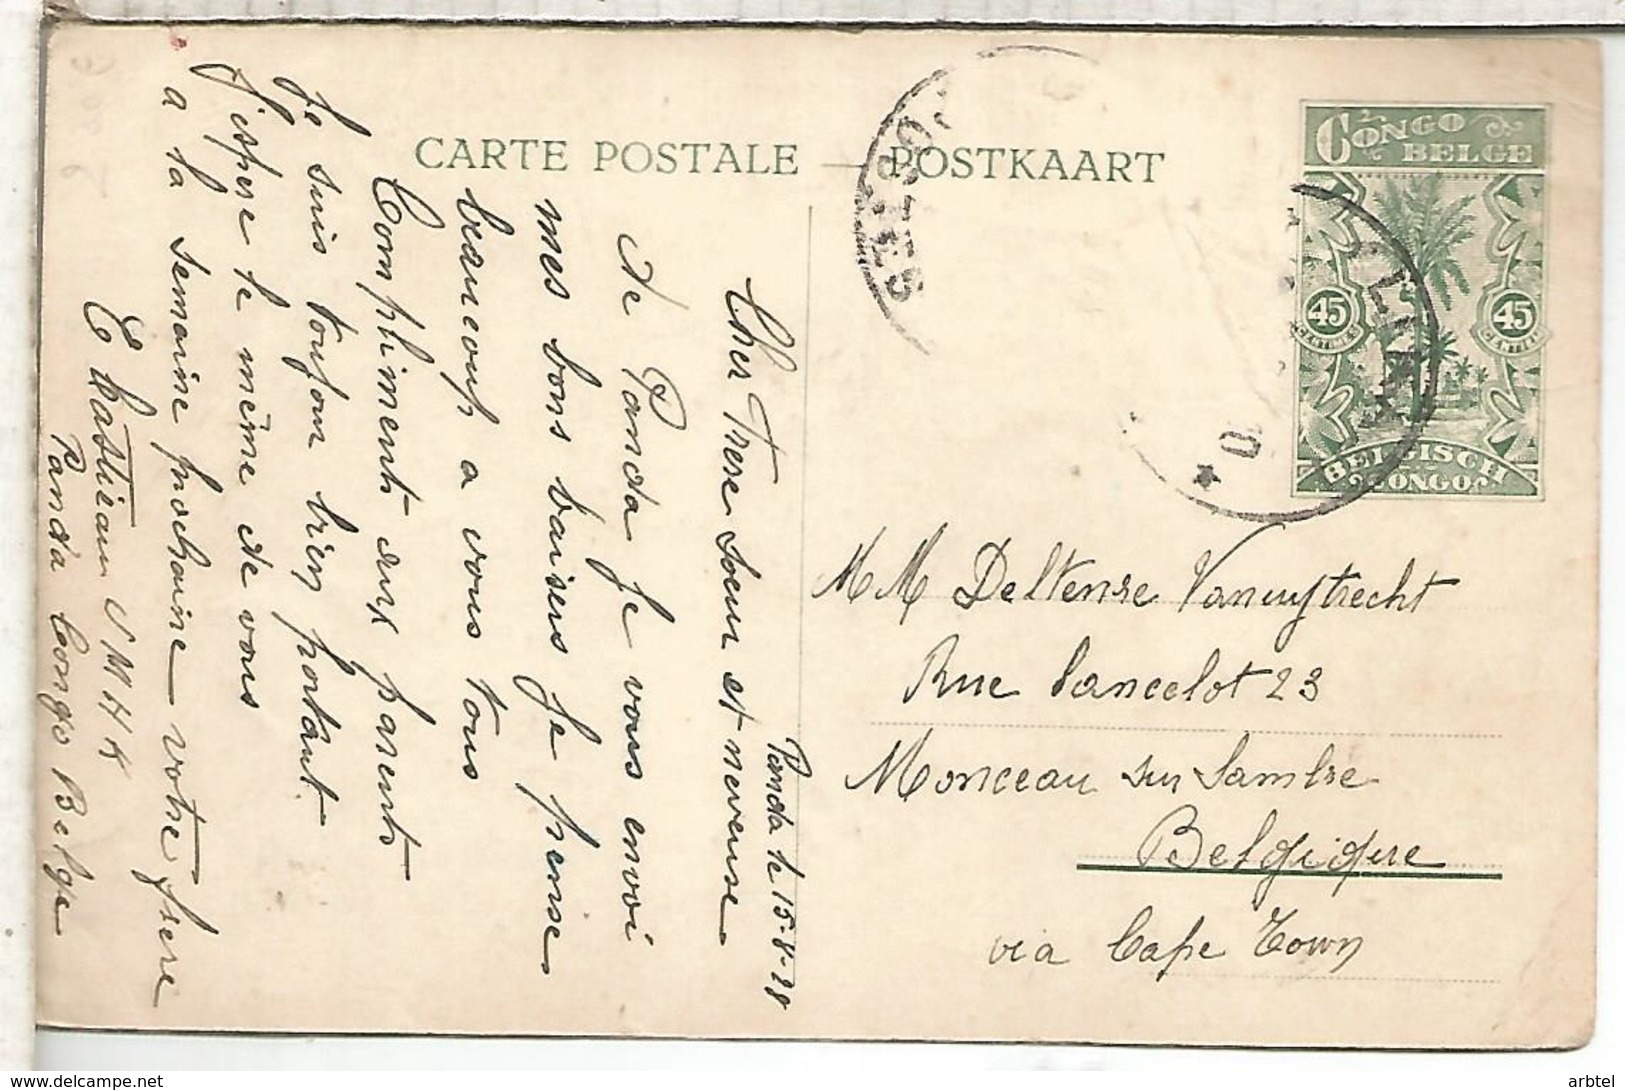 CARTE POSTALE — POSTKAART
CONGO
BELGE
45 45
CENTIMES
BELGISCH
CONGO
Panda le 15-8-28
Cher Frere Soeur et neveuse
de Panda je vous envoi
mes bons baisers je pense
beaucoup a vous tous
Compliments aux parents
Je suis toujour bien portant
j'espere le même de vous
a la semaine prochaine votre frere
E Hastieau S M H K
Panda Congo Belge
MM Deltenre Vanuytrecht
Rue Lancelot 23
Monceau sur Sambre
Belgique
via Cape Town
arbtel